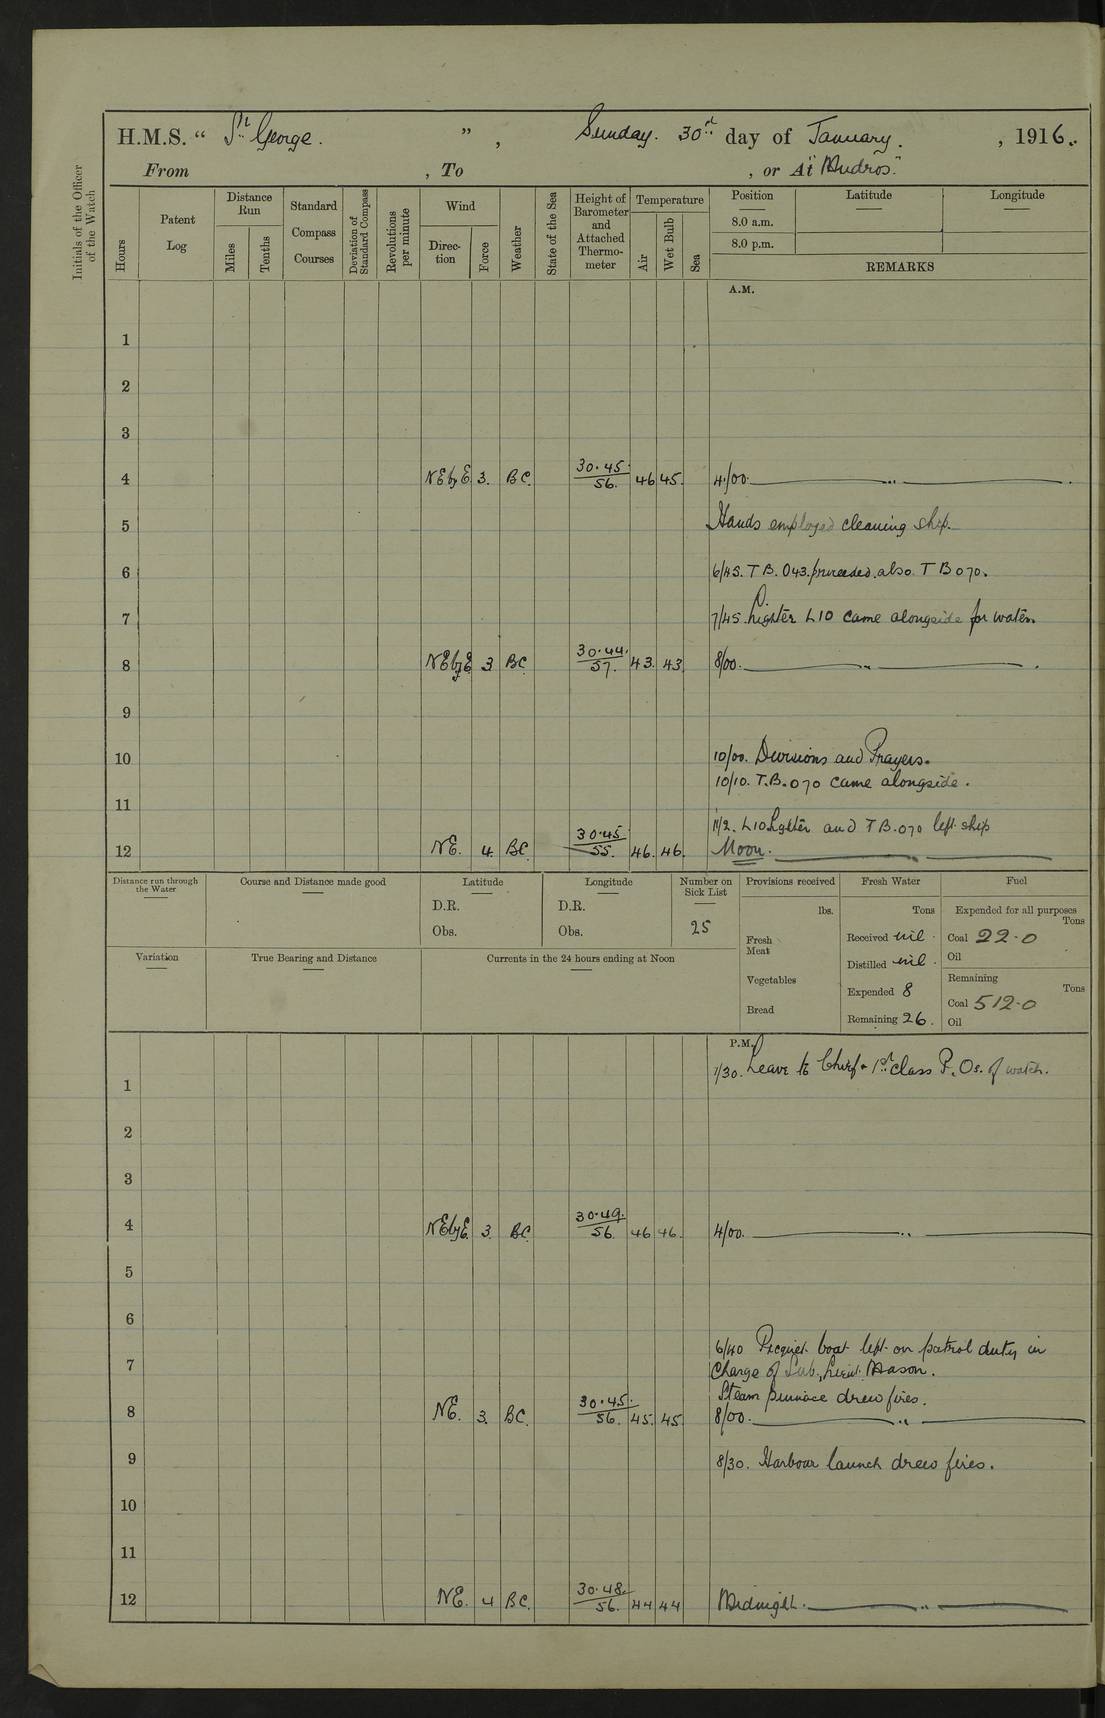 H.M.S. “ St George. ” , Sunday. 30th day of January. , 1916.
From , To , or At "Mudros."
Initials of the Officer of the Watch
Hours
Patent Log
Distance Run
Miles
Tenths
Standard Compass Courses
Deviation of Standard Compass
Revolutions per minute
Wind
Direction
Force
Weather
State of the Sea
Height of Barometer and Attached Thermometer
Temperature
Air
Wet Bulb
Sea
Position Latitude Longitude
8.0 a.m.
8.0 p.m.
REMARKS
A.M.
1
2
3
4 NEbyE. 3. BC. 30.45. 56. 46 45. 4/00. „ .
5 Hands employed cleaning ship.
6 6/45. T B. 043. proceeded. also T B 070.
7 7/45. Lighter L10 came alongside for water.
8 NEbyE 3 BC 30.44. 57. 43. 43. 8/00. „ .
9
10 10/00. Divisions and Prayers.
10/10. T.B. 070 came alongside.
11
11/2. L10 Lighter and T B. 070 left ship
12 NE. 4. BC. 30.45 55. 46. 46. Noon. „
Distance run through the Water
Course and Distance made good
Latitude
D.R.
Obs.
Longitude
D.R.
Obs.
Number on Sick List
25
Provisions received
lbs.
Fresh Meat
Vegetables
Bread
Fresh Water
Tons
Received nil
Distilled nil
Expended 8
Remaining 26.
Fuel
Expended for all purposes
Tons
Coal 22.0
Oil
Remaining
Tons
Coal 512.0
Oil
Variation
True Bearing and Distance
Currents in the 24 hours ending at Noon
P.M.
1/30. Leave to Chief & 1st class P. Os. of watch.
1
2
3
4 NEbyE. 3. BC. 30.49. 56. 46 46. 4/00. „
5
6
6/40 Picquet boat left on patrol duty in
7 Charge of Sub. Lieut. Mason.
Steam pinnace drew fires.
8 NE. 3. BC. 30.45. 56. 45. 45. 8/00. „
9 8/30. Harbour launch drew fires.
10
11
12 NE. 4 BC. 30.48. 56. 44 44 Midnight. „